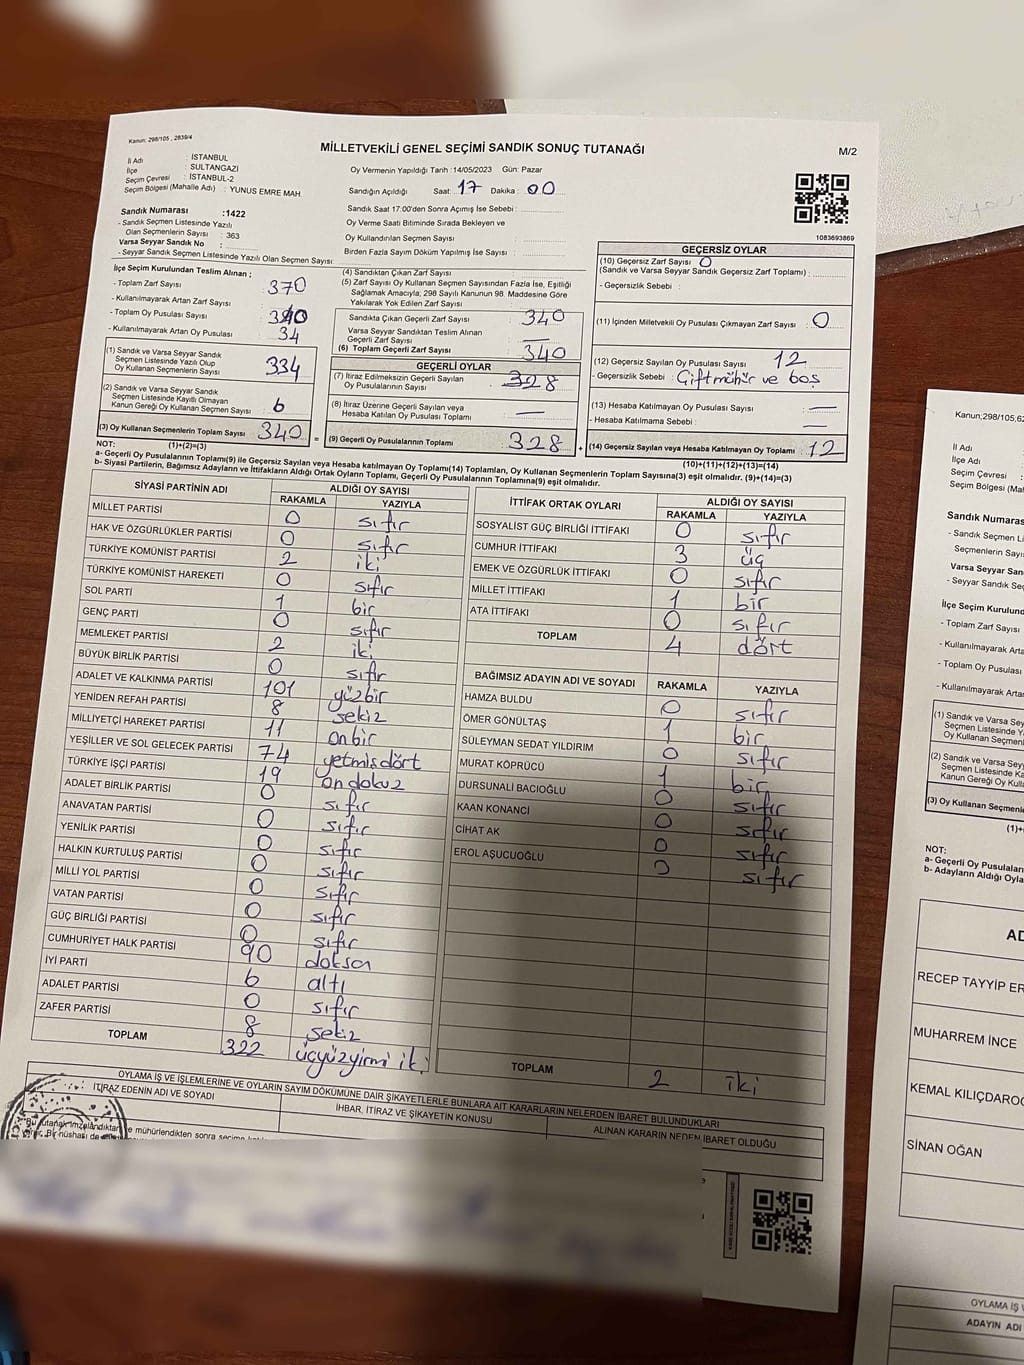 Kanun; 298/105 , 2839/4
MİLLETVEKİLİ GENEL SEÇİMİ SANDIK SONUÇ TUTANAĞI
M/2
İl Adı : İSTANBUL
İlçe : SULTANGAZİ
Seçim Çevresi : İSTANBUL-2
Seçim Bölgesi (Mahalle Adı) : YUNUS EMRE MAH.
Oy Vermenin Yapıldığı Tarih :14/05/2023 Gün: Pazar
Sandığın Açıldığı Saat: 17 Dakika: 00
Sandık Saat 17:00'den Sonra Açımış İse Sebebi :
Oy Verme Saati Bitiminde Sırada Bekleyen ve
Oy Kullandırılan Seçmen Sayısı :
Birden Fazla Sayım Döküm Yapılmış İse Sayısı :
Sandık Numarası :1422
- Sandık Seçmen Listesinde Yazılı
Olan Seçmenlerin Sayısı : 363
Varsa Seyyar Sandık No :
- Seyyar Sandık Seçmen Listesinde Yazılı Olan Seçmen Sayısı:
1083693869
İlçe Seçim Kurulundan Teslim Alınan ;
- Toplam Zarf Sayısı : 370
- Kullanılmayarak Artan Zarf Sayısı :
- Toplam Oy Pusulası Sayısı :
- Kullanılmayarak Artan Oy Pusulası : 34
(1) Sandık ve Varsa Seyyar Sandık
Seçmen Listesinde Yazılı Olup
Oy Kullanan Seçmenlerin Sayısı : 334
(2) Sandık ve Varsa Seyyar Sandık
Seçmen Listesinde Kayıtlı Olmayan
Kanun Gereği Oy Kullanan Seçmen Sayısı : 6
(3) Oy Kullanan Seçmenlerin Toplam Sayısı : 340
(4) Sandıktan Çıkan Zarf Sayısı :
(5) Zarf Sayısı Oy Kullanan Seçmen Sayısından Fazla İse, Eşitliği
Sağlamak Amacıyla; 298 Sayılı Kanunun 98. Maddesine Göre
Yakılarak Yok Edilen Zarf Sayısı :
Sandıkta Çıkan Geçerli Zarf Sayısı : 340
Varsa Seyyar Sandıktan Teslim Alınan
Geçerli Zarf Sayısı : —
(6) Toplam Geçerli Zarf Sayısı : 340
GEÇERLİ OYLAR
(7) İtiraz Edilmeksizin Geçerli Sayılan
Oy Pusulalarının Sayısı : 328
(8) İtiraz Üzerine Geçerli Sayılan veya
Hesaba Katılan Oy Pusulası Toplamı : —
= (9) Geçerli Oy Pusulalarının Toplamı : 328 +
GEÇERSİZ OYLAR
(10) Geçersiz Zarf Sayısı : 0
(Sandık ve Varsa Seyyar Sandık Geçersiz Zarf Toplamı) :
- Geçersizlik Sebebi :
(11) İçinden Milletvekili Oy Pusulası Çıkmayan Zarf Sayısı : 0
(12) Geçersiz Sayılan Oy Pusulası Sayısı : 12
- Geçersizlik Sebebi : Çiftmühür ve boş
(13) Hesaba Katılmayan Oy Pusulası Sayısı : —
- Hesaba Katılmama Sebebi : —
(14) Geçersiz Sayılan veya Hesaba Katılmayan Oy Toplamı : 12
NOT: (1)+(2)=(3)
(10)+(11)+(12)+(13)=(14)
a- Geçerli Oy Pusulaları Toplam(9) ile Geçersiz Sayılan veya Hesaba katılmayan Oy Toplamı(14) Toplamları, Oy Kullanan Seçmenlerin Toplam Sayısına(3) eşit olmalıdır. (9)+(14)=(3)
b- Siyasi Partilerin, Bağımsız Adayların ve İttifakların Aldığı Ortak Oyların Toplamı, Geçerli Oy Pusulalarının Toplamına(9) eşit olmalıdır.
SİYASİ PARTİNİN ADI ALDIĞI OY SAYISI
RAKAMLA YAZIYLA
MİLLET PARTİSİ 0 sıfır
HAK VE ÖZGÜRLÜKLER PARTİSİ 0 sıfır
TÜRKİYE KOMÜNİST PARTİSİ 2 iki
TÜRKİYE KOMÜNİST HAREKETİ 0 sıfır
SOL PARTİ 1 bir
GENÇ PARTİ 0 sıfır
MEMLEKET PARTİSİ 2 iki
BÜYÜK BİRLİK PARTİSİ 0 sıfır
ADALET VE KALKINMA PARTİSİ 101 yüzbir
YENİDEN REFAH PARTİSİ 8 sekiz
MİLLİYETÇİ HAREKET PARTİSİ 11 onbir
YEŞİLLER VE SOL GELECEK PARTİSİ 74 yetmişdört
TÜRKİYE İŞÇİ PARTİSİ 19 on dokuz
ADALET BİRLİK PARTİSİ 0 sıfır
ANAVATAN PARTİSİ 0 sıfır
YENİLİK PARTİSİ 0 sıfır
HALKIN KURTULUŞ PARTİSİ 0 sıfır
MİLLİ YOL PARTİSİ 0 sıfır
VATAN PARTİSİ 0 sıfır
GÜÇ BİRLİĞİ PARTİSİ 0 sıfır
CUMHURİYET HALK PARTİSİ 90 doksan
İYİ PARTİ 6 altı
ADALET PARTİSİ 0 sıfır
ZAFER PARTİSİ 8 sekiz
TOPLAM 322 üçyüzyirmi iki
İTTİFAK ORTAK OYLARI ALDIĞI OY SAYISI
RAKAMLA YAZIYLA
SOSYALİST GÜÇ BİRLİĞİ İTTİFAKI 0 sıfır
CUMHUR İTTİFAKI 3 üç
EMEK VE ÖZGÜRLÜK İTTİFAKI 0 sıfır
MİLLET İTTİFAKI 1 bir
ATA İTTİFAKI 0 sıfır
TOPLAM 4 dört
BAĞIMSIZ ADAYIN ADI VE SOYADI RAKAMLA YAZIYLA
HAMZA BULDU 0 sıfır
ÖMER GÖNÜLTAŞ 1 bir
SÜLEYMAN SEDAT YILDIRIM 0 sıfır
MURAT KÖPRÜCÜ 1 bir
DURSUNALİ BACIOĞLU 0 sıfır
KAAN KONANCİ 0 sıfır
CİHAT AK 0 sıfır
EROL AŞUCUOĞLU 0 sıfır
TOPLAM 2 iki
OYLAMA İŞ VE İŞLEMLERİNE VE OYLARIN SAYIM DÖKÜMÜNE DAİR ŞİKAYETLERLE BUNLARA AİT KARARLARIN NELERDEN İBARET BULUNDUKLARI
İTİRAZ EDENİN ADI VE SOYADI
İHBAR, İTİRAZ VE ŞİKAYETİN KONUSU
ALINAN KARARIN NEDEN İBARET OLDUĞU
Kanun;298/105;62
İl Adı
İlçe Adı
Seçim Çevresi
Seçim Bölgesi (Mah
Sandık Numaras
- Sandık Seçmen Li
Seçmenlerin Sayı
Varsa Seyyar San
- Seyyar Sandık Seç
İlçe Seçim Kurulund
- Toplam Zarf Sayısı
- Kullanılmayarak Arta
- Toplam Oy Pusulası
- Kullanılmayarak Artan
(1) Sandık ve Varsa Sey
Seçmen Listesinde Y
Oy Kullanan Seçmen
(2) Sandık ve Varsa Seyya
Seçmen Listesinde Ka
Kanun Gereği Oy Kulla
(3) Oy Kullanan Seçmenle
(1)+
NOT:
a- Geçerli Oy Pusulaları
b- Adayların Aldığı Oyla
AD
RECEP TAYYİP ER
MUHARREM İNCE
KEMAL KILIÇDAROĞ
SİNAN OĞAN
OYLAMA İŞ V
ADAYIN ADI